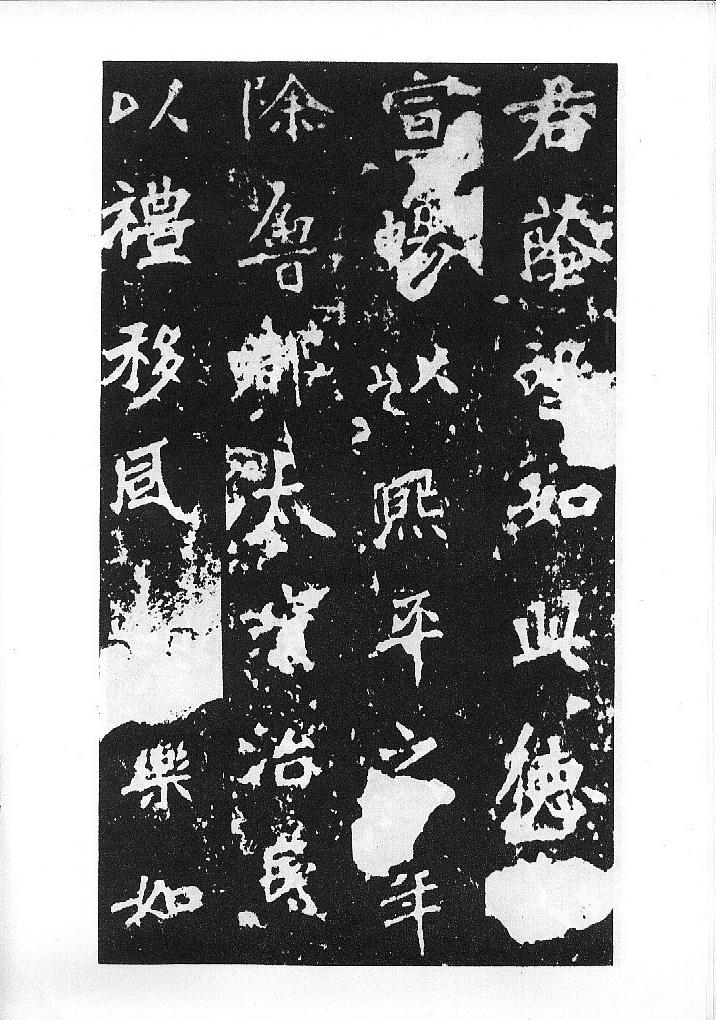 君蔭望如此德
宣暢以熙平之年
除魯郡太守治民
以禮移風樂如